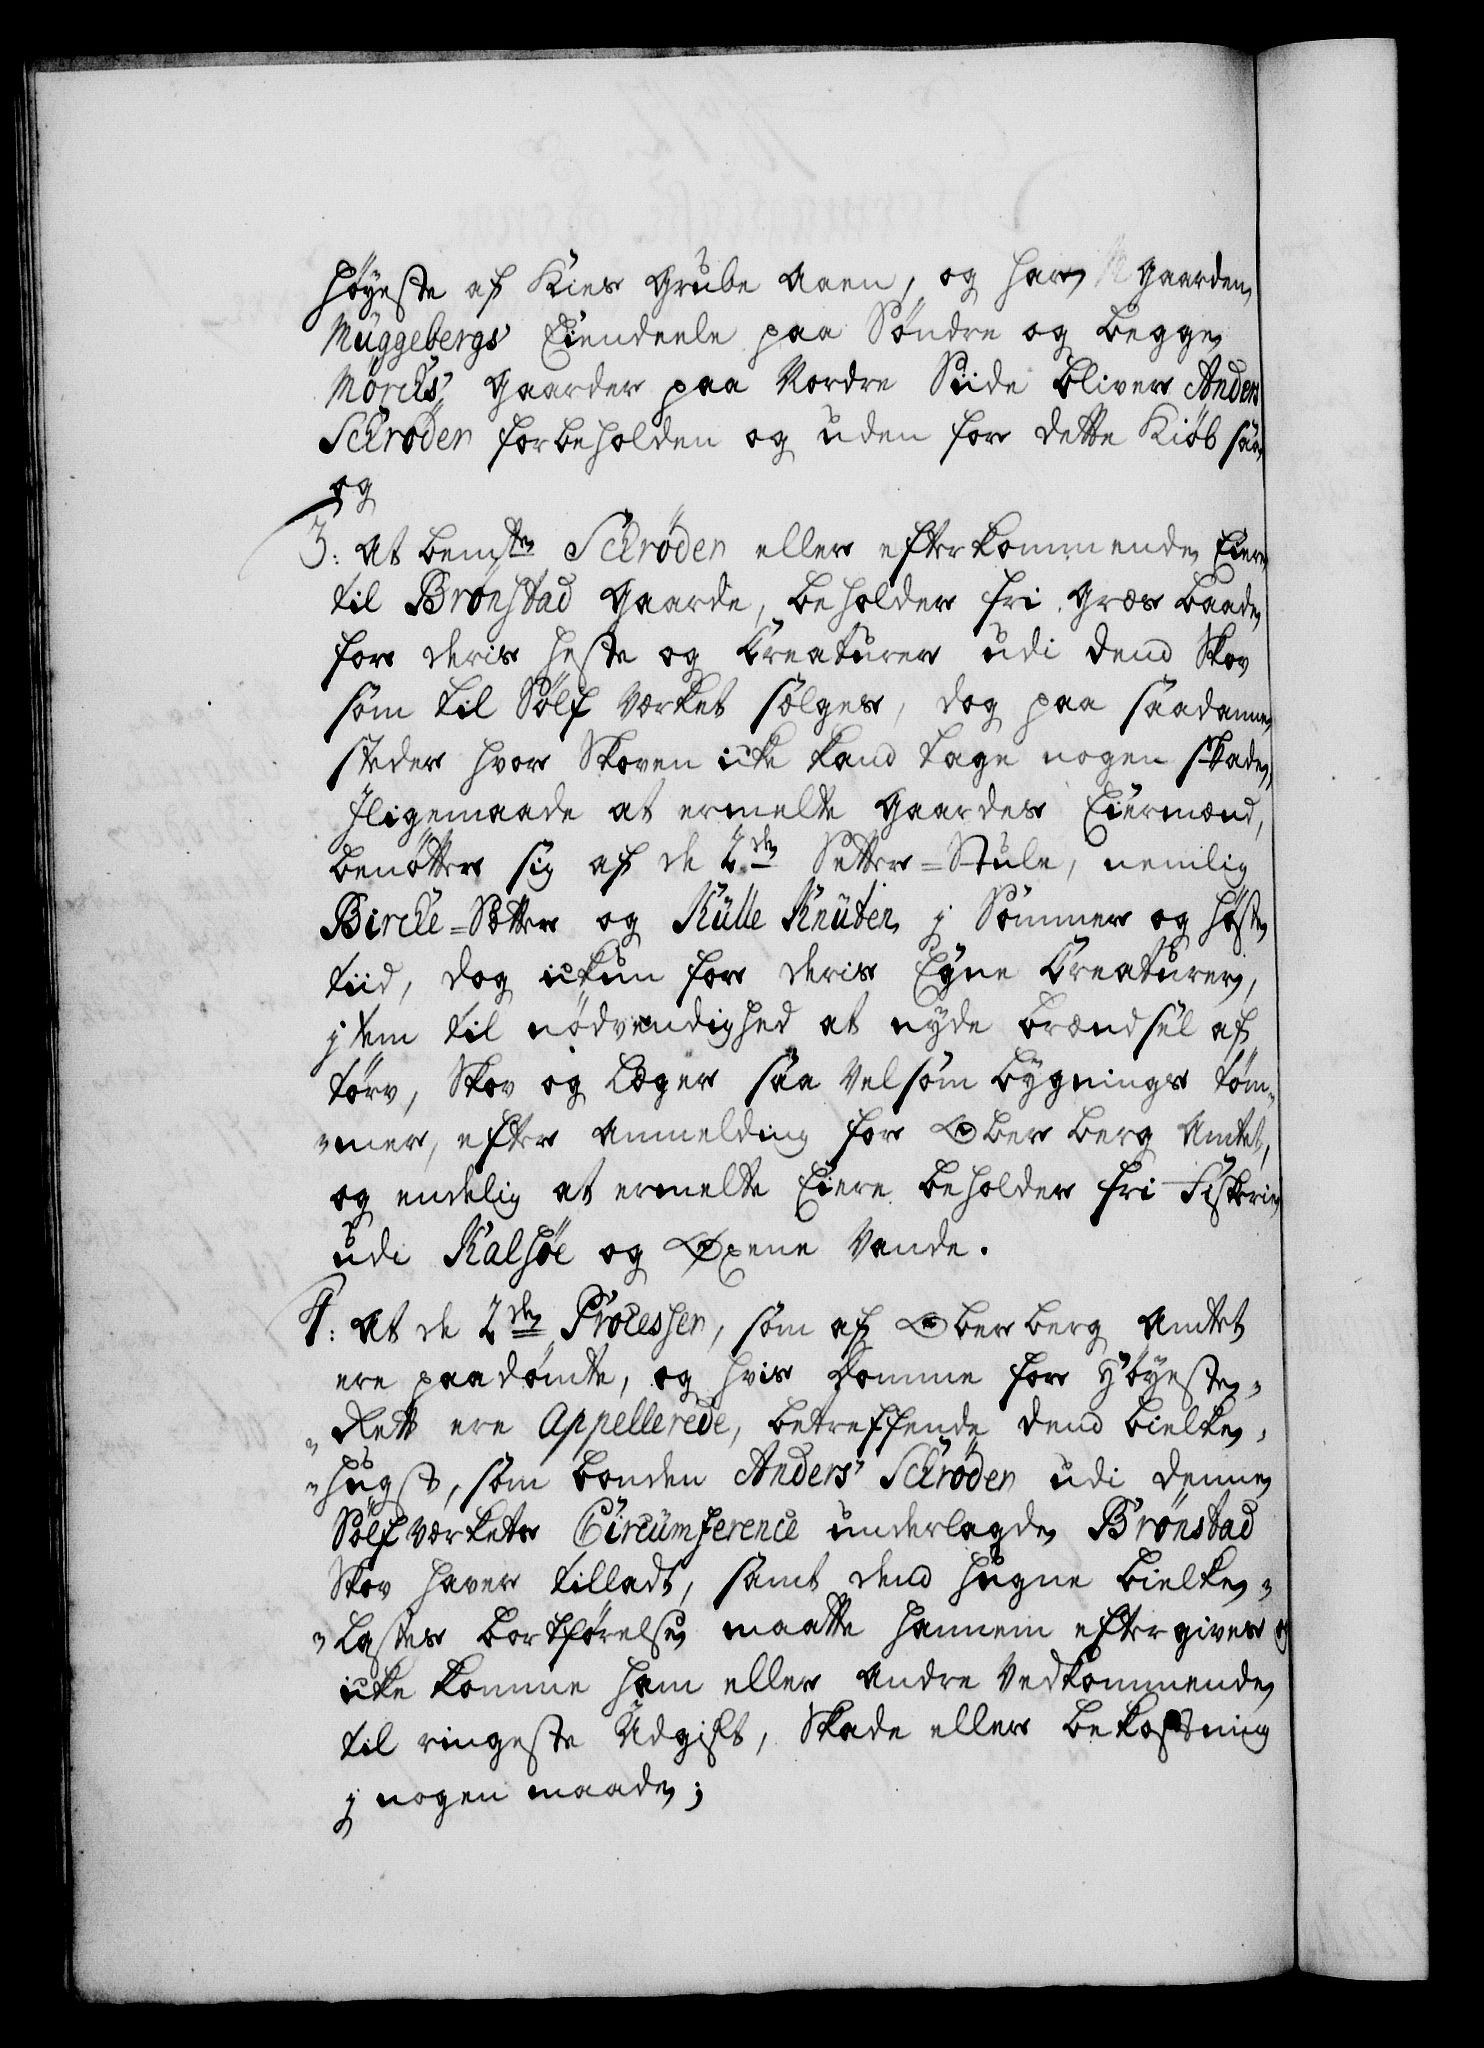 høyeste af Kies Grube Aaen, og har Gaarden
Muggebergs Eiendeele paa Søndre og begge
Mörchs Gaarder paa Nordre Siide bliver Anders
Schrøder forbeholden og uden for dette Kiöb saa,
og
3: At bemte Schrøder eller efterkommende Eiere
til Brønstad Gaarde, beholder fri Græs baade
for deris Heste og Creaturer udi dend Skov
som til Sølf Værket sælges, dog paa saadanne
steder hvor Skoven icke kand tage nogen Skade,
Jligemaade at ermelte Gaardes Eiermænd,
benötter sig af de 2de Setter=Stule, nemlig
Bircke=Sætter og Kulle Knuten j Sommer og Høste
tiid, dog ickun for deris Egne Creaturer,
jtem til nødvendighed at nyde brændsel af
törv, Skov og Læger saa velsom bygnings töm-
-mer, efter Anmelding for Ober berg Amtet,
og endelig at ermelte Eiere beholder fri Fiskerie
udi Kalsøe og Øxene Vande.
4: At de 2de Processer, som af Ober berg Amtet
ere paadömte, og hvis Domme for Höyeste-
-Rett ere Appellerede, betreffende dend bielke-
-Hugst, som bonden Anders Schrøder udi denne
Sølf Værkets Circumference underlagde Brønstad
Skov haver tilladt, samt dend hugne bielke-
-Lastes bortførelse maatte hannem eftergives og
icke komme ham eller andre Vedkommende
til ringeste Udgift, Skade eller bekostning
j nogen maade;